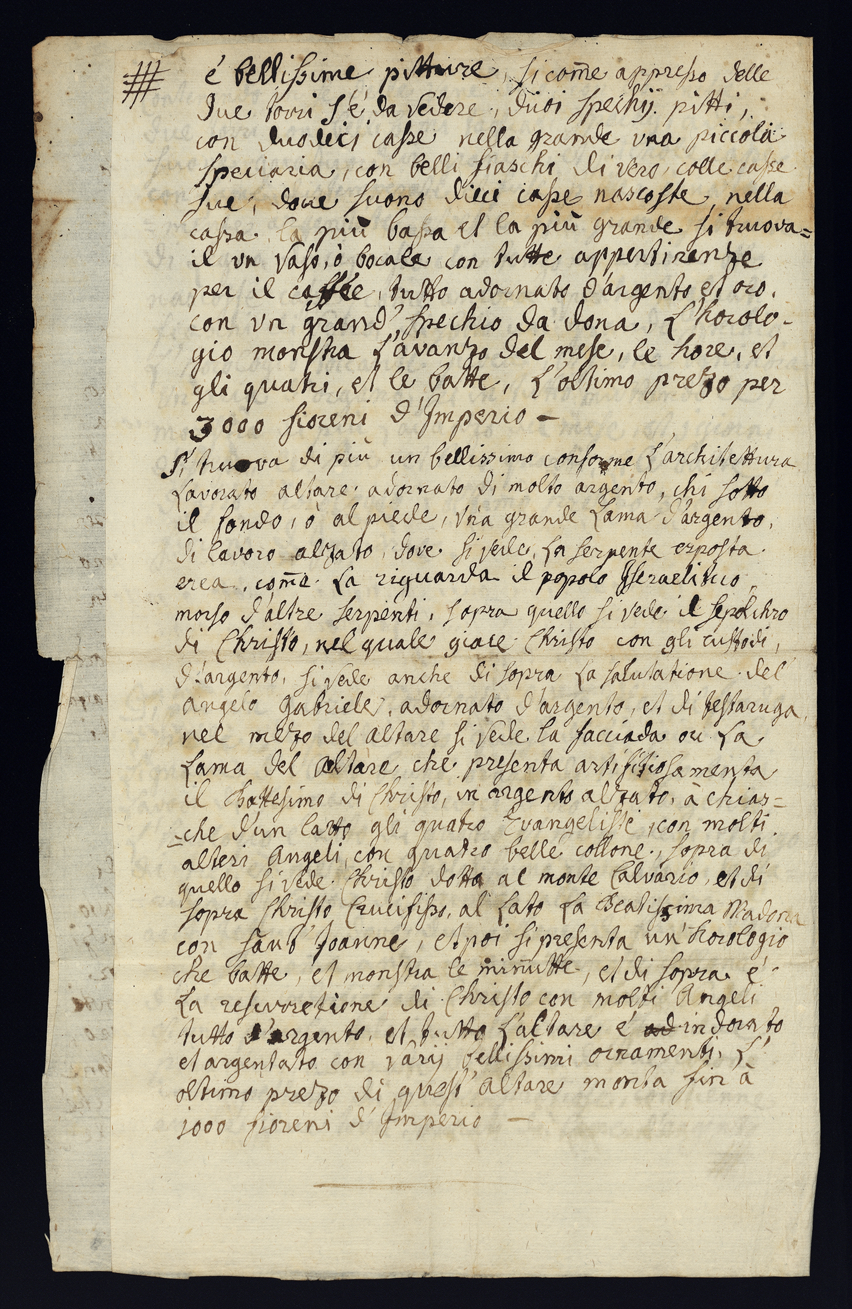 # é bellissime pitture, si come appresso delle
due torri s'è da vedere, duoi spechij pitti,
con duodeci casse nella grande una piccola
speciaria, con belli fiaschi di vero, colle casse
sue, dove suono dieci casse nascoste, nella
cassa la più bassa et la più grande si truova=
il un vaso, ò bocale con tutte appertinenze
per il caffée, tutto adornato d'argento et oro,
con un grand' spechio da dona, L'horolo-
gio monstra l'avanzo del mese, le hore, et
gli quatri, et le batte, L'oltimo prezo per
3000 fioreni d'Imperio –
Si truova di più un bellissimo conforme l'architettura
lavorato altare adornato di molto argento, chi sotto
il fondo, ò al piede, una grande lama d'argento,
di lavoro alzato, dove si vede, la serpente exposta
erea, come la riguarda il popolo Isseraelitico
morso d'altre serpenti, sopra quello si vede il sepolchro
di Christo, nel quale giace Christo con gli custodi,
d'argento, si vede anche di sopra la salutatione del
angelo Gabriele, adornato d'argento, et di testaruga,
nel mezo del altare si vede la facciada ou la
lama del altare che presenta artifitiosamenta
il Battesimo di Christo, in argento alzato, à chias=
=che d'un latto gli quatro Evangelisté, con molti
alteri Angeli, con quatro belle collone, sopra di
quello si vede Christo dotta al monte Calvario, et di
sopra Christo Crucifisso, al lato la Beatissima Madona
con sant' Joanne, et poi si presenta un' horologio
che batte, et monstra le minutte, et di sopra é
la resurretione di Christo con molti Angeli
tutto d'argento, et tutto l'altare é ad indorato
et argentato con varij bellissimi ornamenti, L'
oltimo prezo di quest' altare monta fin' à
1000 fioreni d'Imperio –